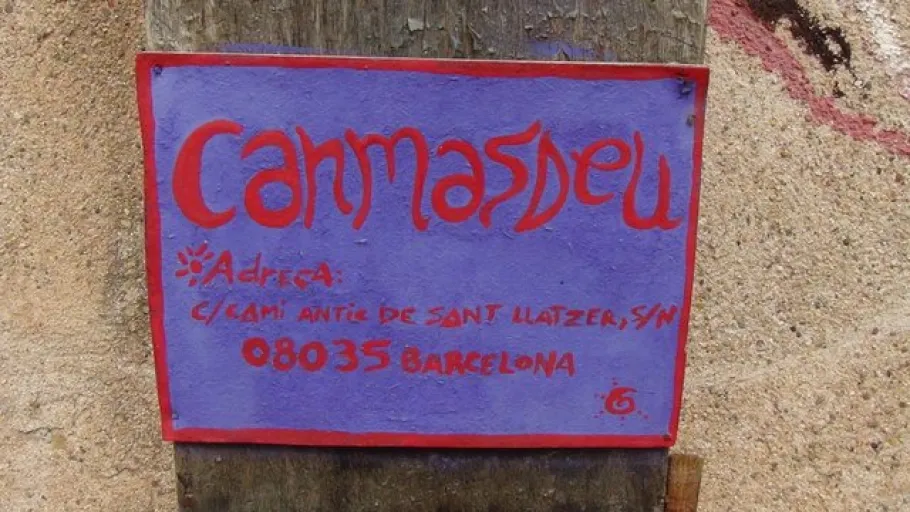 CanMasDeu
Adreça:
C/CAMI ANTIC DE SANT LLATZER, S/N
08035 BARCELONA